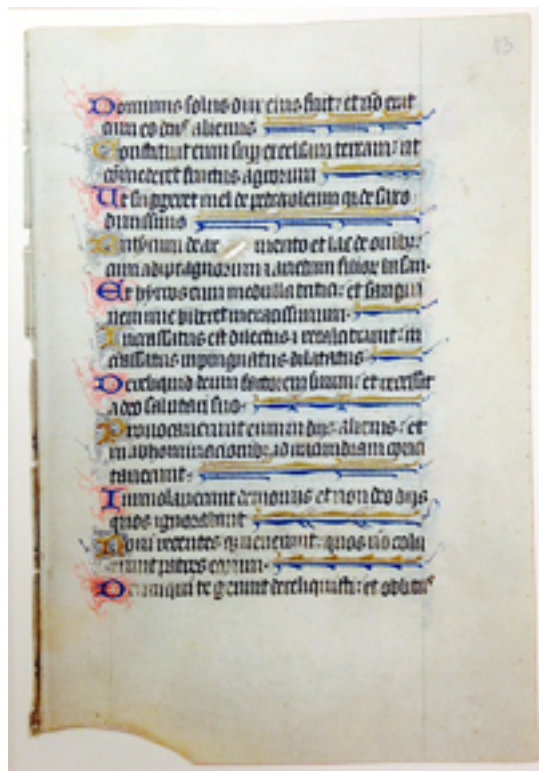 83
Dominus solus dux eius fuit: et nō erat
cum eo deus alienus
Constituit eum sup excelsam terram: ut
cōmederet fructus agrorum
Ut suggeret mel de petra oleum q; de saxo
durissimo
Butyrum de ar mento et lac de ovibz:
cum adipe agnorum z arietum filior basan.
Et hyrcos cum medulla tritici: et sangui
nem uve biberet meracissimum.
Incrassatus est dilectus z recalcitravit: in
crassatus inpinguatus dilatatus
Dereliquid deum factorem suum: et recessit
a deo salutari suo.
Provocaverunt eum in dijs alienis: et
in abhominacionibz ad iracundiam conci
taverunt.
Immolaverunt demoniis et non deo dijs
quos ignorabant
Novi recentes q; venerunt: quos nō colu
erunt patres eorum.
Deum qui te genuit dereliquisti: et oblitus